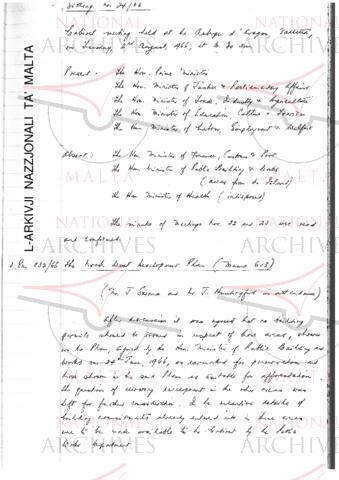 L-ARKIVJI NAZZJONALI TA' MALTA
Sitting no. 24/66
Cabinet meeting held at the Auberge d'Aragon, Valletta,
on Tuesday, 2nd August, 1966, at
Present: The Hon. Prime Minister
The Hon. Minister of Justice & Parliamentary Affairs
The Hon. Minister of Trade, Industry & Agriculture
The Hon. Minister of Education, Culture & Tourism
The Hon. Minister of Labour, Employment & Welfare
Absent: The Hon. Minister of Finance, Customs & Port
The Hon. Minister of Public Building & Works
(away from the Island)
The Hon. Minister of Health (indisposed)
The minutes of meetings Nos. 22 and 23 were read
and confirmed
The North West Development Plan (Memo 603)
(Mr. J. and Mr. J. Huntingford in attendance)
After discussion it was agreed that no building
permits should be issued in respect of those areas, shown
in the Plan, signed by the Hon. Minister of Public Building and
Works on June, 1966, as earmarked for preservation and
those shown in the said Plan as suitable for afforestation.
The question of allowing development in the other areas was
left for further consideration. In the meantime details of
building commitments already entered into in these areas
are to be made available to the Cabinet by the Public
Works Department
NATIONAL
ARCHIVES